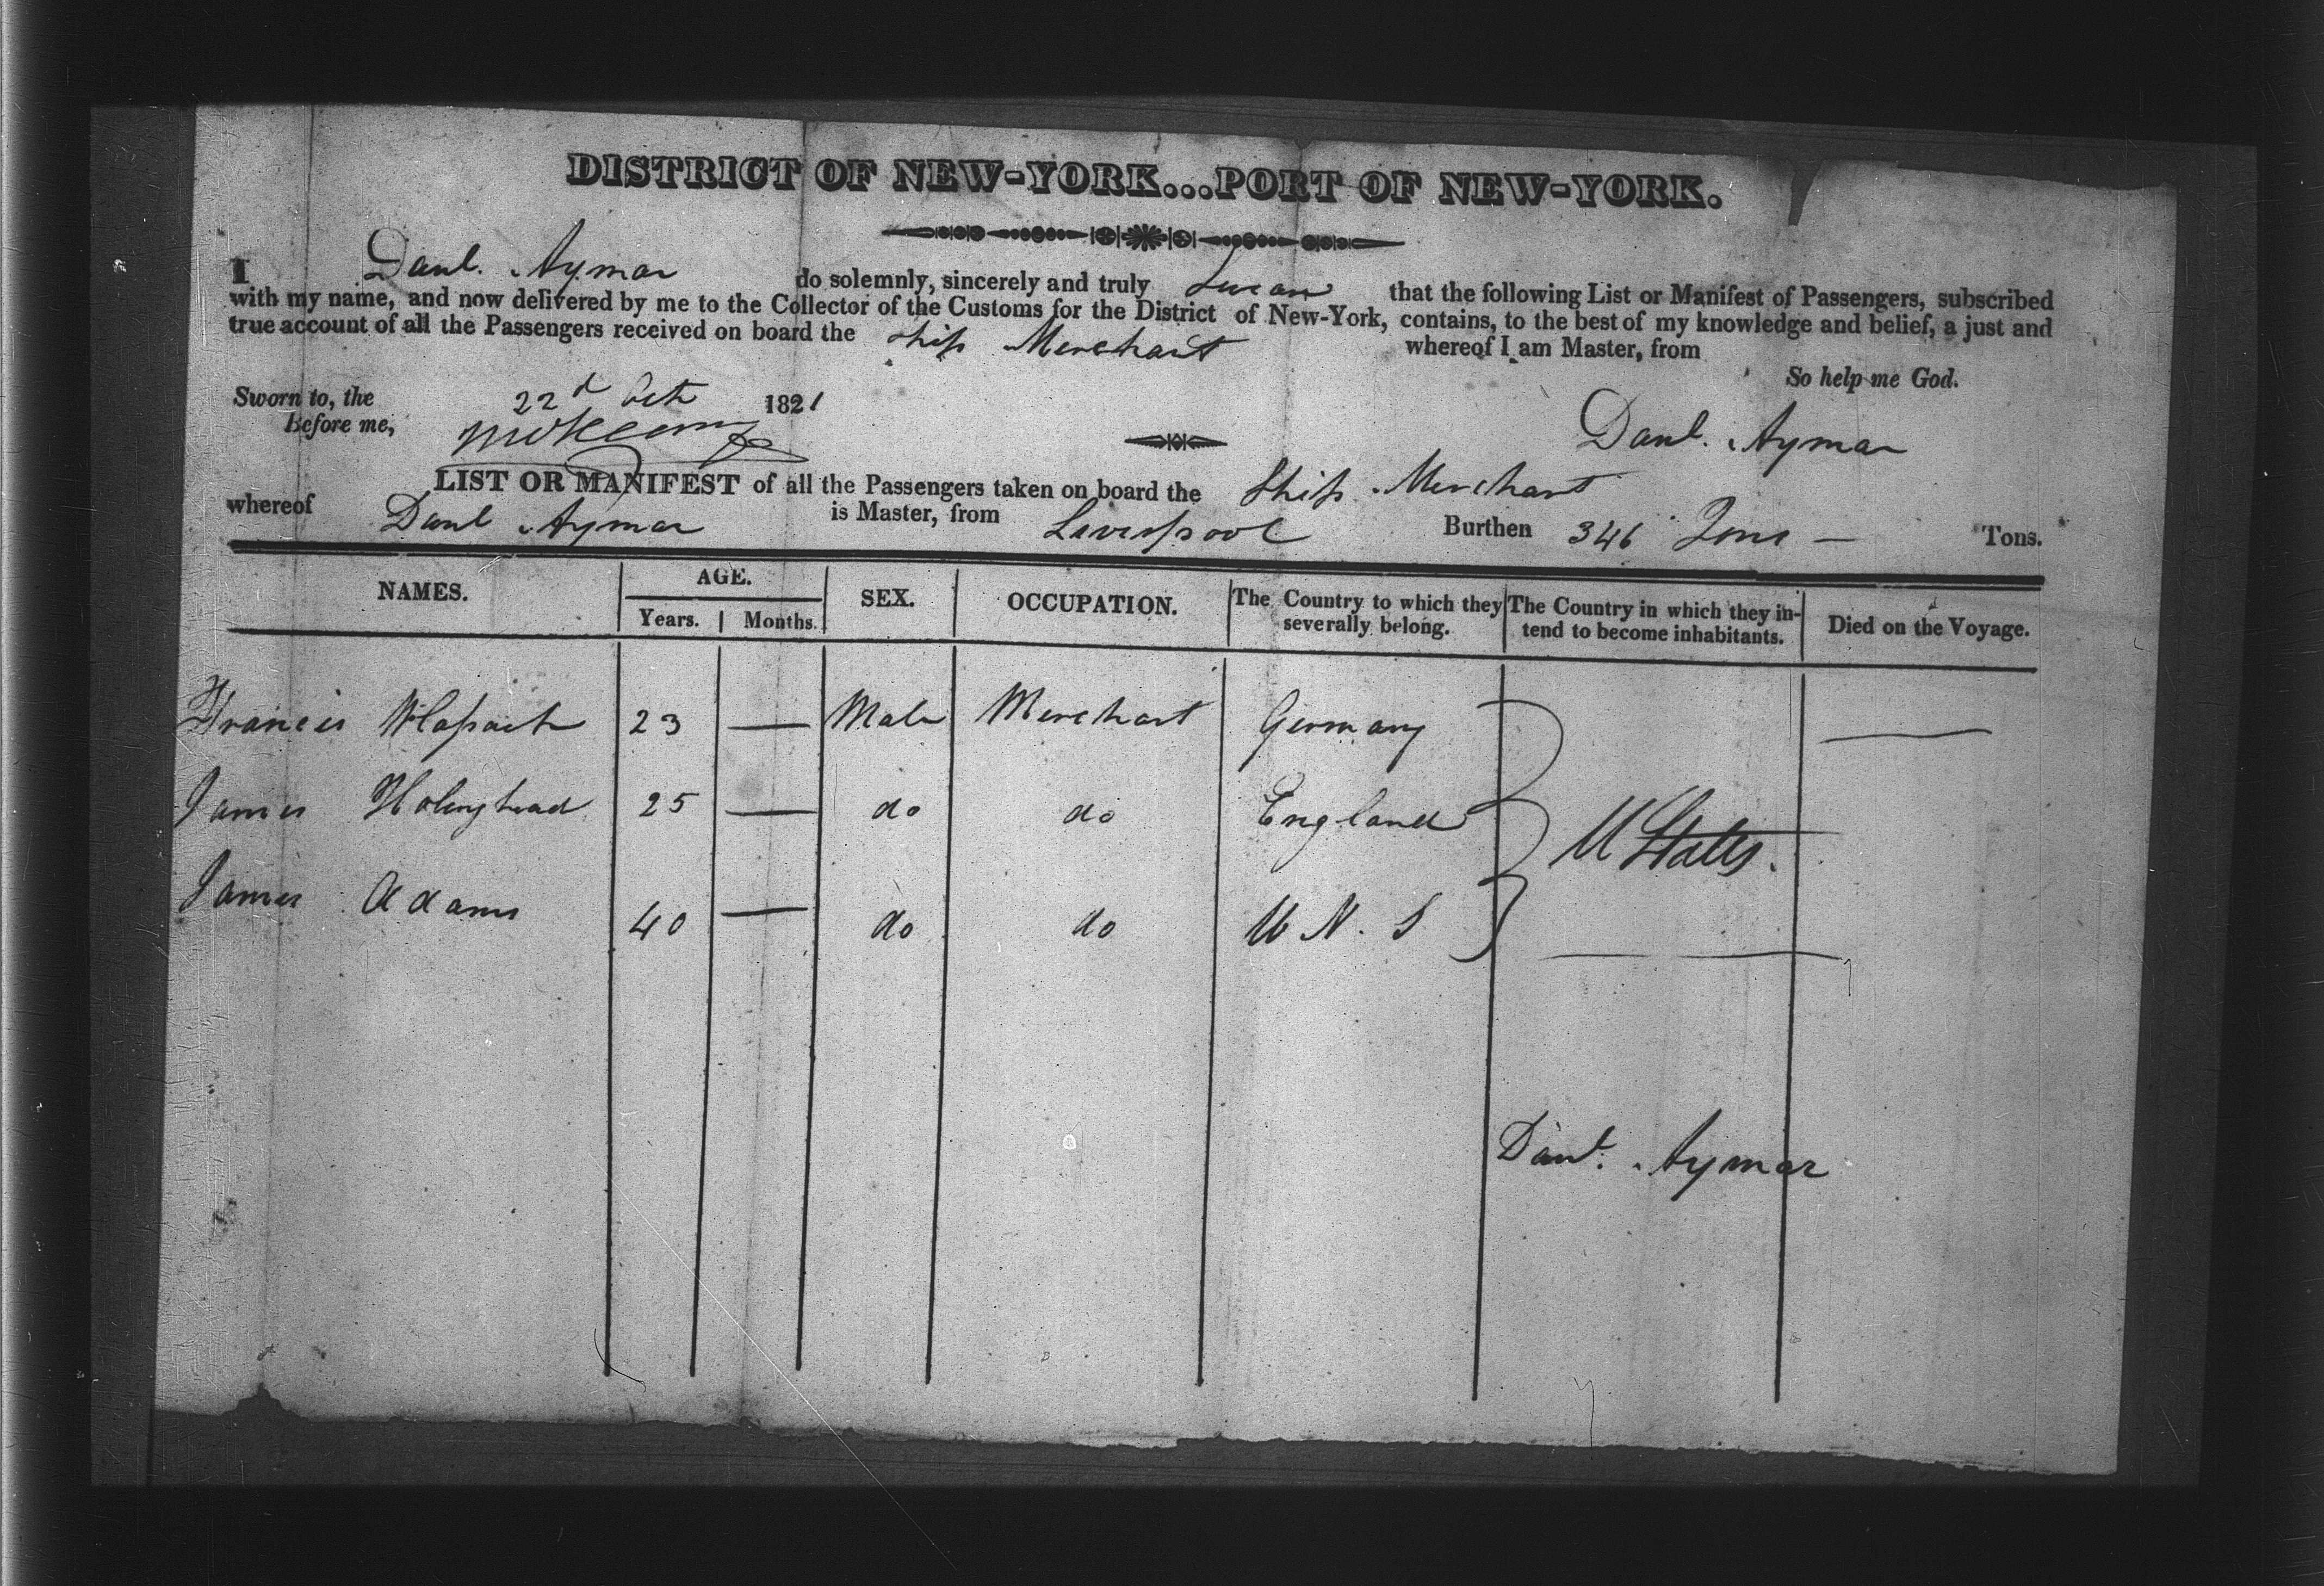 DISTRICT OF NEW-YORK...PORT OF NEW-YORK.
I Danl. Aymar do solemnly, sincerely and truly Swear that the following List or Manifest of Passengers, subscribed
with my name, and now delivered by me to the Collector of the Customs for the District of New-York, contains, to the best of my knowledge and belief, a just and
true account of all the Passengers received on board the Ship Merchant whereof I am Master, from
So help me God.
Sworn to, the 22d Oct 1821
Before me, Danl. Aymar
LIST OR MANIFEST of all the Passengers taken on board the Ship Merchant
whereof Danl Aymar is Master, from Liverpool Burthen 346 Tons — Tons.
NAMES. AGE. SEX. OCCUPATION. The Country to which they severally belong. The Country in which they intend to become inhabitants. Died on the Voyage.
Years. Months.
Francis 23 — Male Merchant Germany —
James 25 — do do England U States.
James Adams 40 — do do U N. S
Danl. Aymar